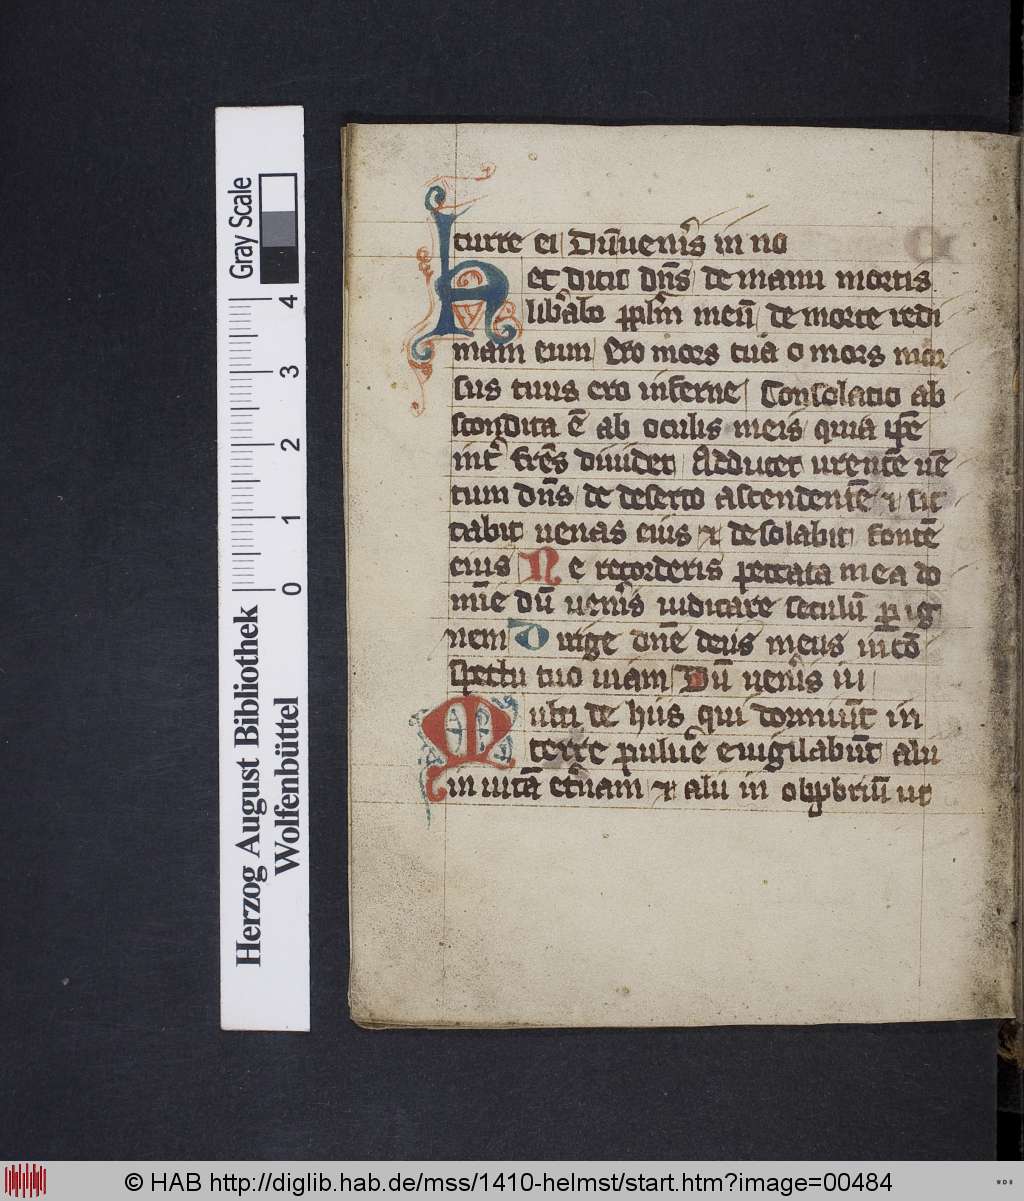 Gray Scale
4
3
2
1
0
Herzog August Bibliothek
Wolfenbüttel
turre ei Dū veneris in no
Hec dicit dn̄s de manu mortis
lib̄abo pplm̄ meū de morte redi
mam eum Ero mors tua o mors mor
sus tuus ero inferne Consolatio ab
scondita ē ab oculis meis quia ip̄e
int̄ fr̄es diuidet Adducet urentē uē
tum dn̄s de deserto ascendentē ⁊ sic
cabit uenas eius ⁊ desolabit fontē
eius Ne recorderis peccata mea do
mīe dū uen̄is iudicare seculū p ig
nem Dirige dn̄e deus meus in cō
spectu tuo uiam Dū uen̄is iu
Multi de hiis qui dormiūt in
terre puluē euigilabūt alii
in uitā et̄nam ⁊ alii in obp̄briū ut
© HAB http://diglib.hab.de/mss/1410-helmst/start.htm?image=00484